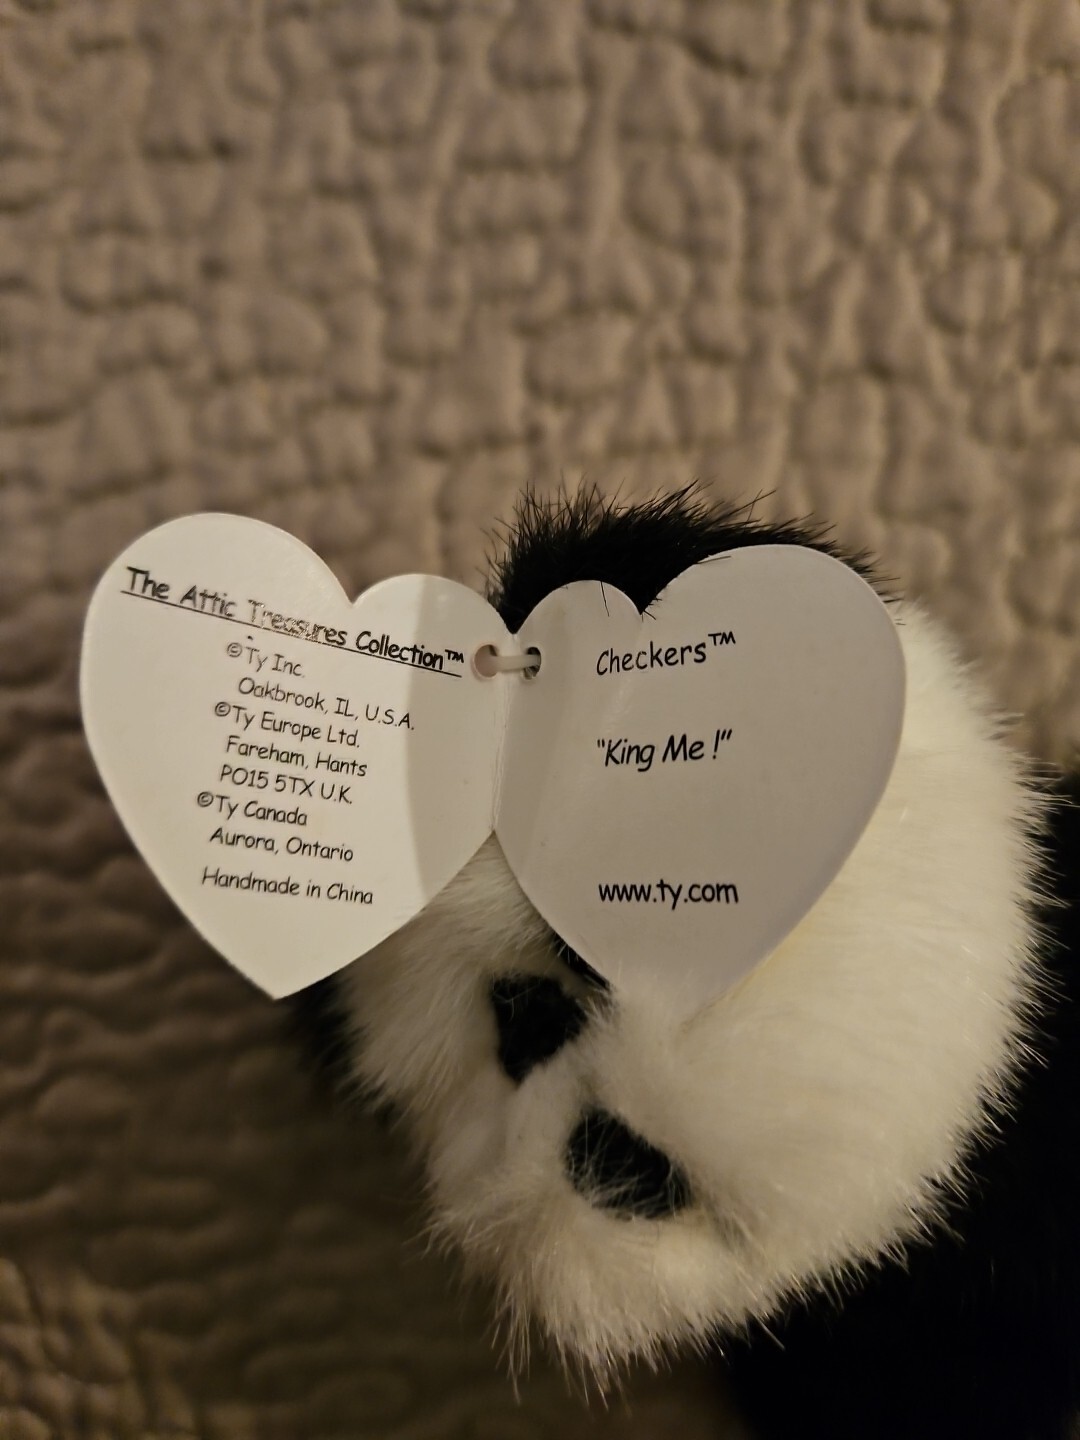 The Attic Treasures Collection™
©Ty Inc.
Oakbrook, IL, U.S.A.
©Ty Europe Ltd.
Fareham, Hants
PO15 5TX U.K.
©Ty Canada
Aurora, Ontario
Handmade in China
Checkers™
"King Me !"
www.ty.com